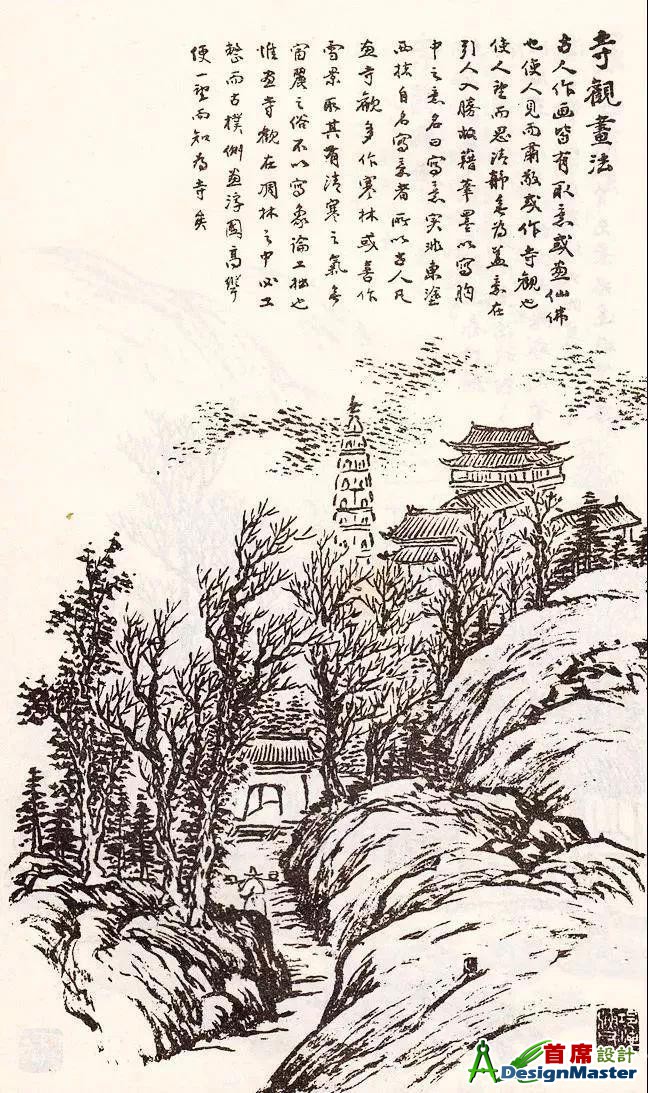 寺觀畫法
古人作画皆有取意或画仙佛
也使人見而肅敬或作寺觀也
使人望而思清靜無为蓋意在
引人入勝故藉筆墨以寫胸
中之意名曰寫意实非東塗
西抹自名寫意者所以古人凡
画寺觀多作寒林或喜作
雪景取其有清寒之氣無
富麗之俗不以寫象論工拙也
惟画寺觀在凋林之中必工
整而古樸側画浮圖高聳
使一望而知为寺矣
首席設計
DesignMaster